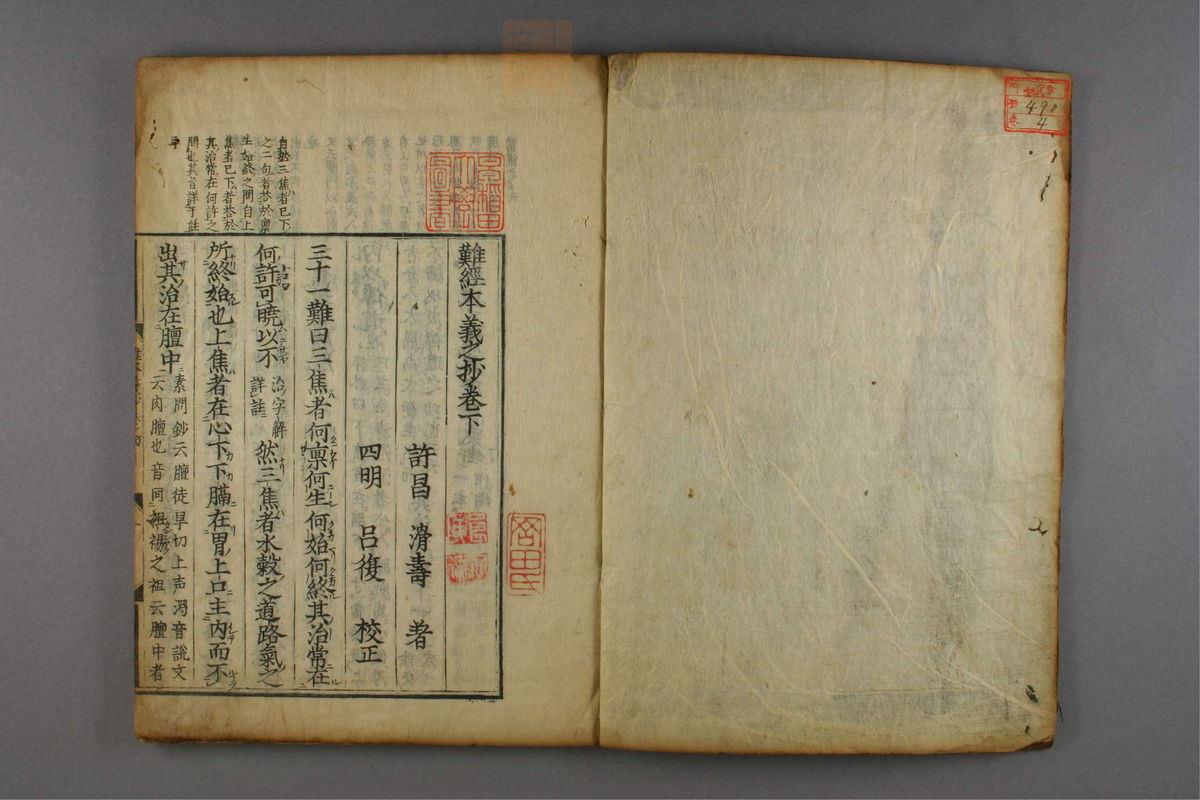 490
4
難經本義之抄卷下
許昌 滑壽 著
四明 呂復 校正
三十一難曰三焦者何稟何生何始何終其治常在
何許可曉以不
治字解
詳註
然三焦者水穀之道路氣之
所終始也上焦者在心下下膈在胃上口主內而不
出其治在膻中
素問鈔云膻徒旱切上声濁音說文
云肉膻也音同袒裼之袒云膻中者
自然三焦者已下
之二句者荅於稟
生始終之問自上
焦者已下者荅於
其治常在何許之
問也其旨詳于註